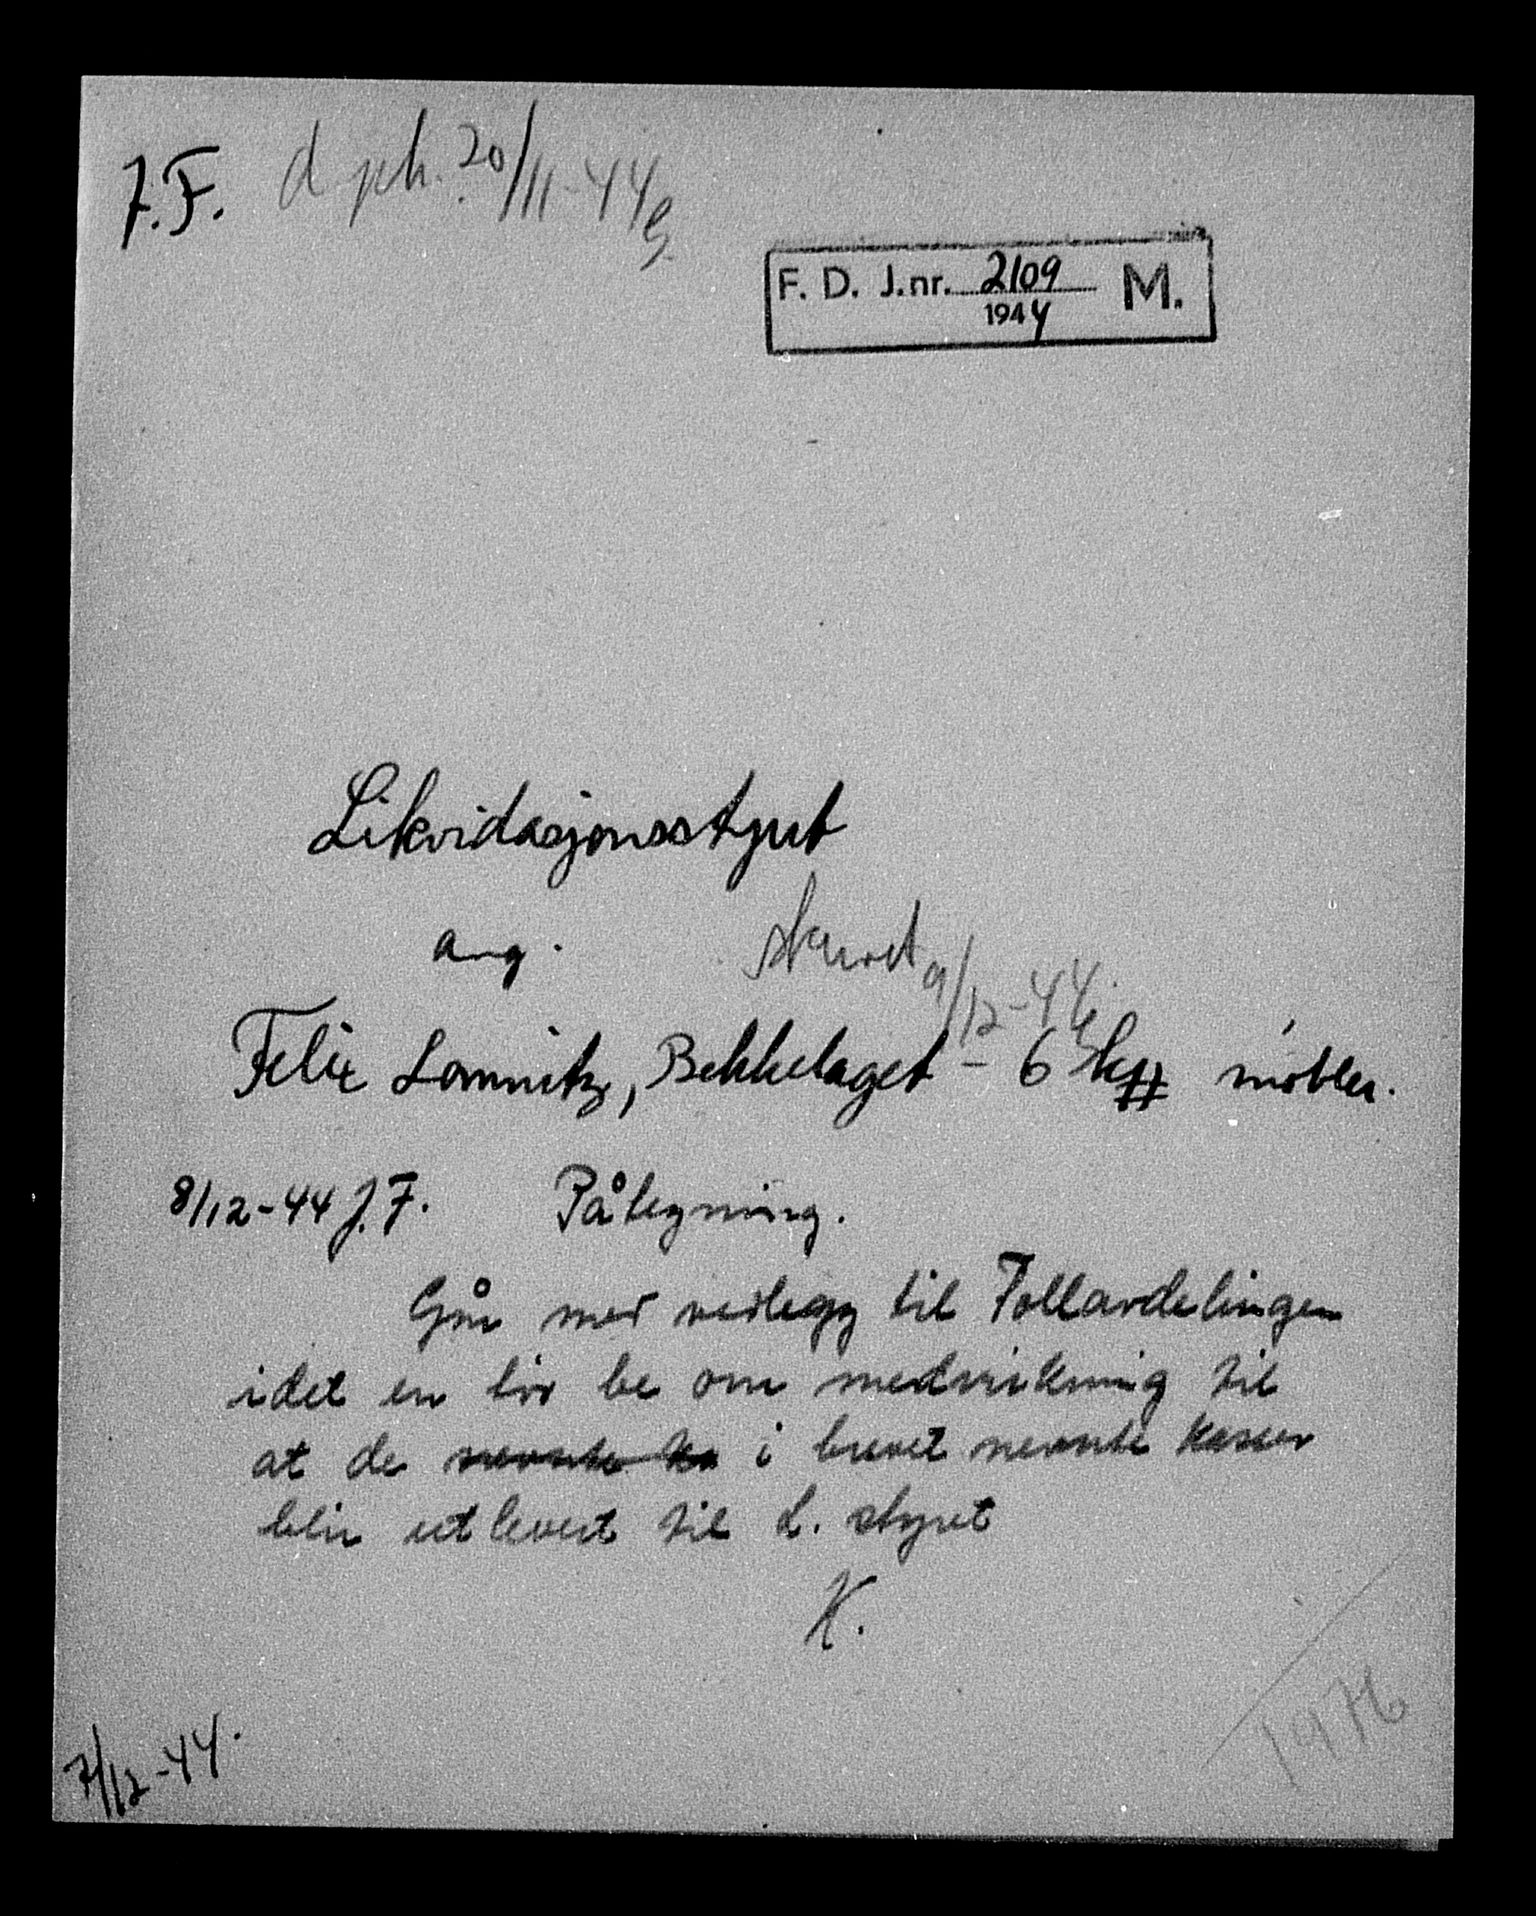 J.F. d ph. 20/11-44
F. D. J.nr. 2109 M.
1944
Likvidasjonsstyret
ang.
skrevet 9/12-44
Felix Lomnitz, Bekkelaget - 6 møbler.
8/12-44 J.F. Påtegning.
Går med vedlegg til Tollavdelingen
idet en tør be om medvirkning til
at de nevnte ka i brevet nevnte kasser
blir utlevert til L. styret
K.
1976
7/12-44.